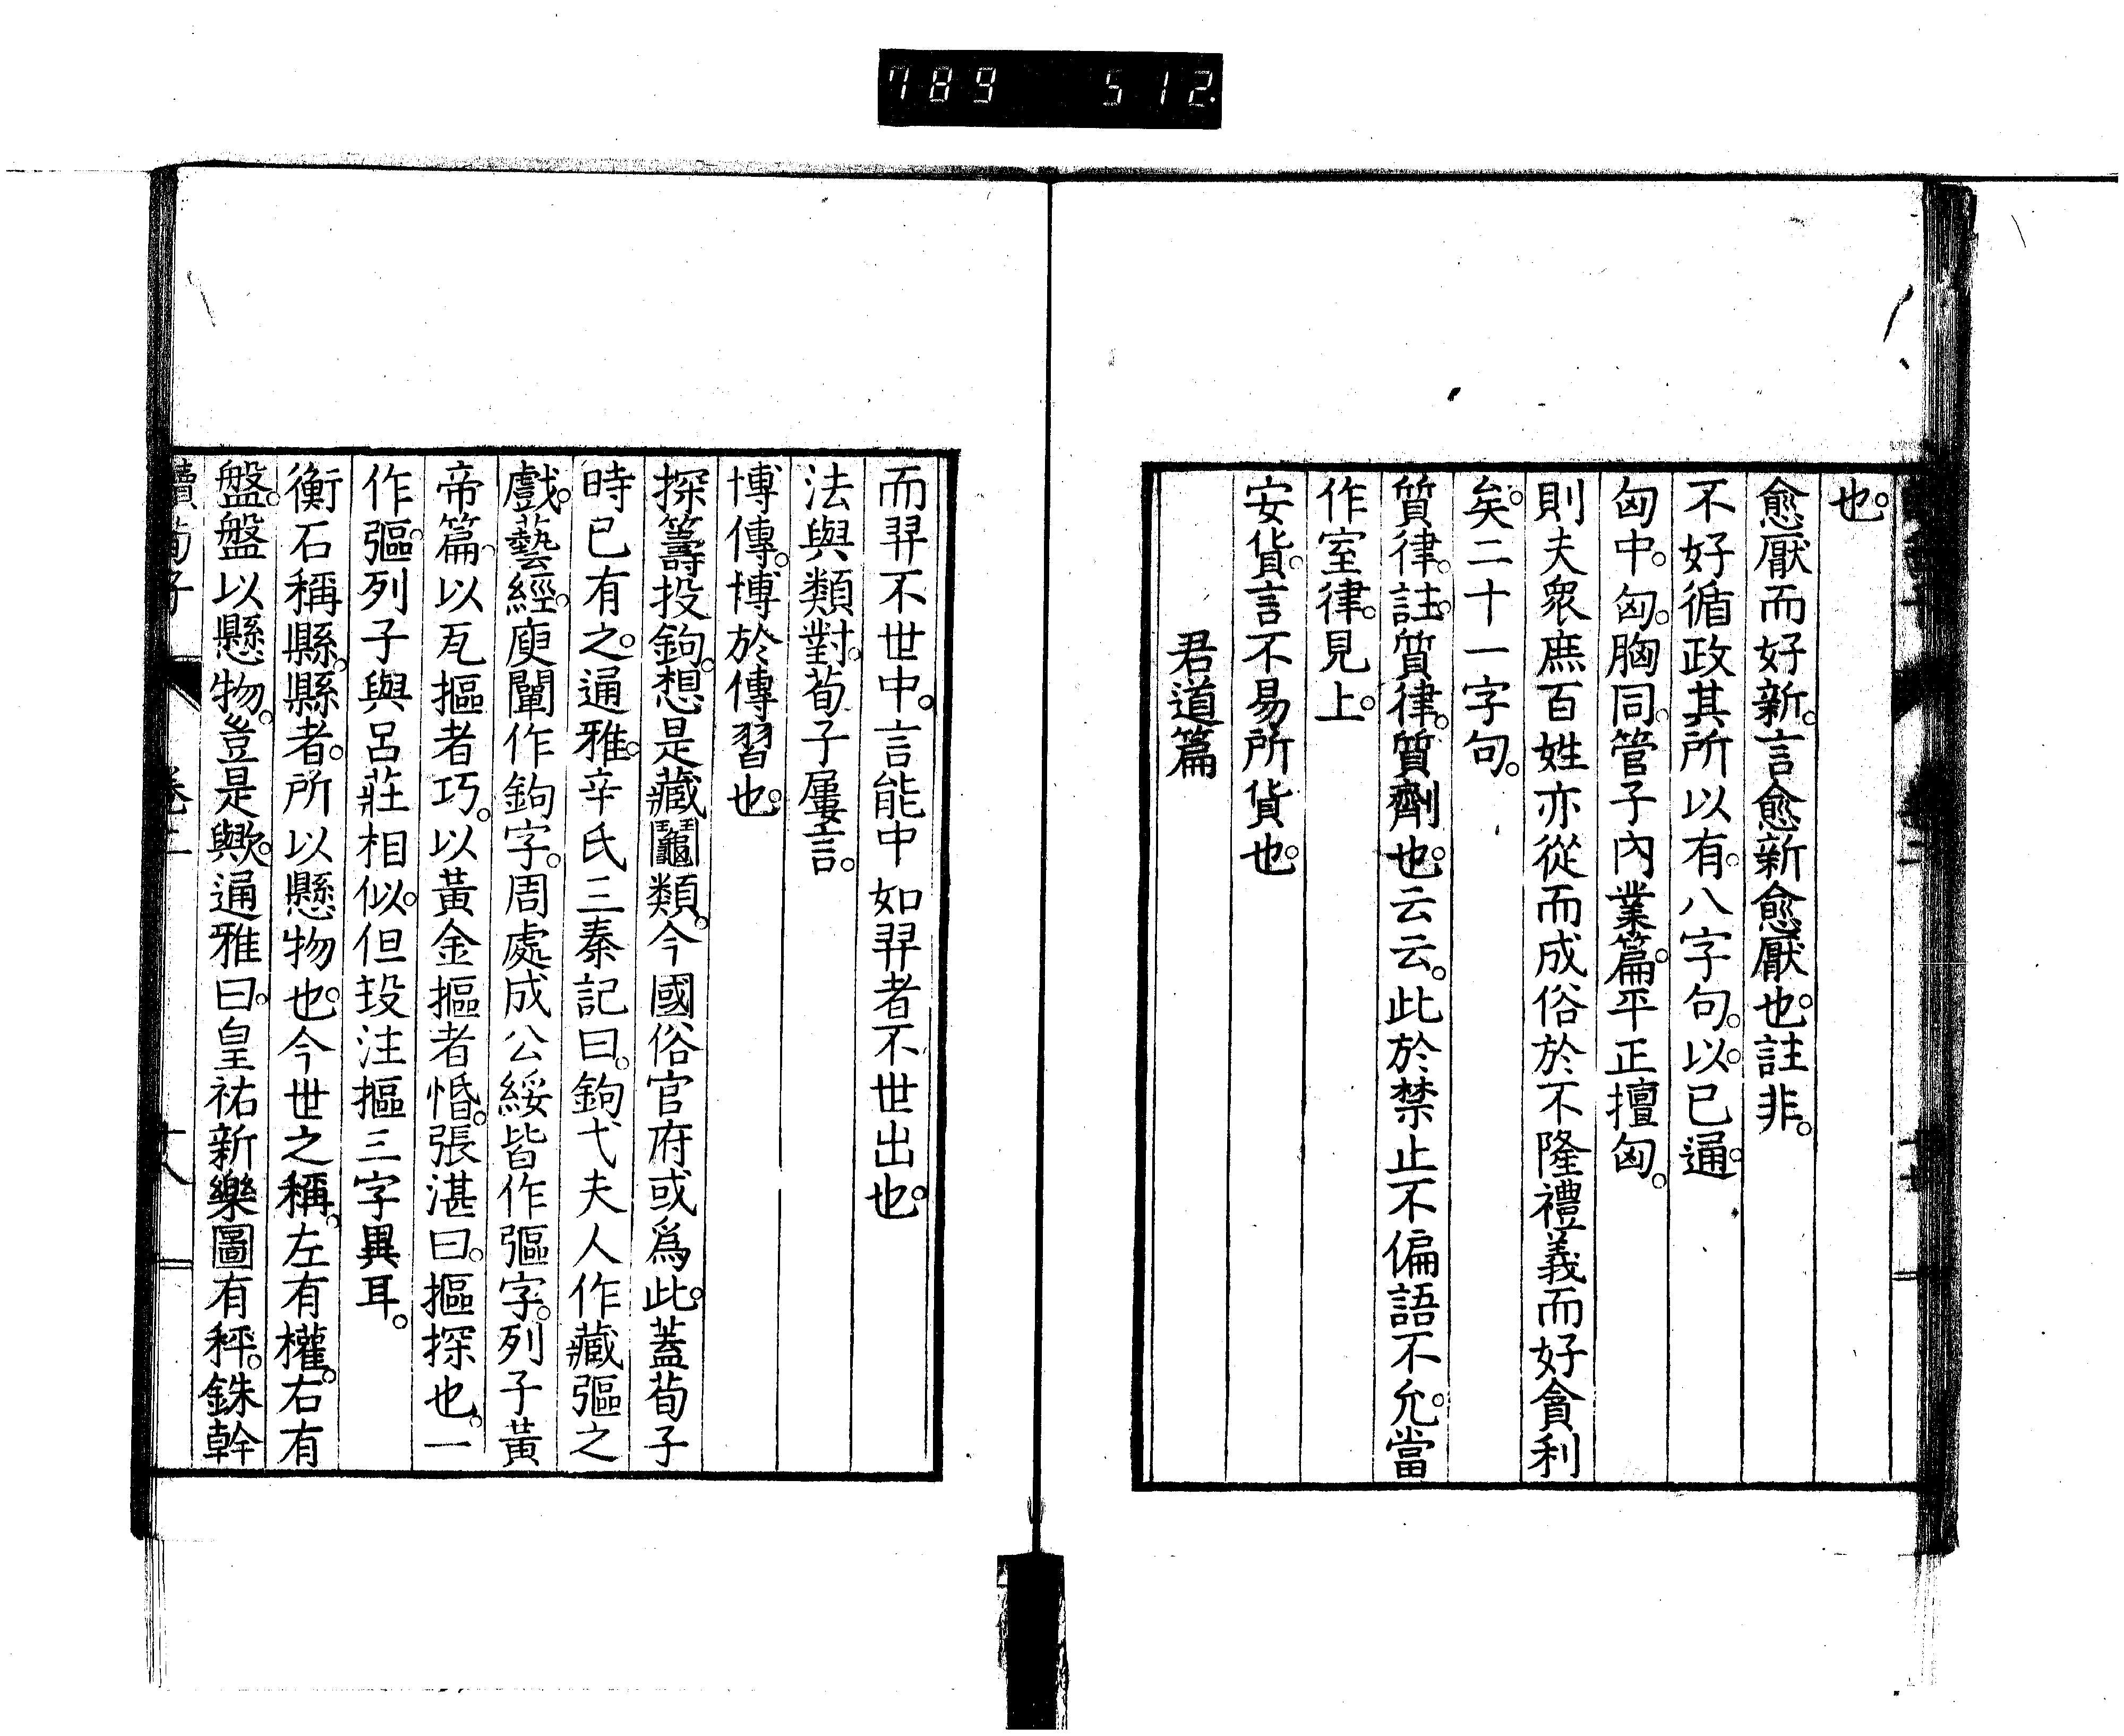 789 512
也。
愈厭而好新。言愈新愈厭也。註非。
不好循政其所以有。八字句。以已通。
匈中。匈。胸同。管子內業篇。平正擅匈。
則夫衆庶百姓亦從而成俗於不隆禮義而好貪利
矣。二十一字句。
質律。註。質律。質劑也。云云。此於禁止不偏語不允。當
作室律。見上。
安貨。言不易所貨也。
君道篇
而羿不世中。言能中如羿者不世出也。
法與類對。荀子屢言。
博傳。博於傳習也。
探籌投鉤。想是藏鬮類。今國俗官府或爲此。蓋荀子
時已有之。通雅。辛氏三秦記曰。鉤弋夫人作藏彄之
戲。藝經。庾闡作鉤字。周處成公綏皆作彄字。列子黃
帝篇。以瓦摳者巧。以黃金摳者惛。張湛曰。摳探也。一
作彄。列子與呂莊相似。但投注摳三字異耳。
衡石稱縣。縣者。所以懸物也。今世之稱。左有權。右有
盤。盤以懸物。豈是歟。通雅曰。皇祐新樂圖有秤。銖幹
讀荀子 卷二 十八